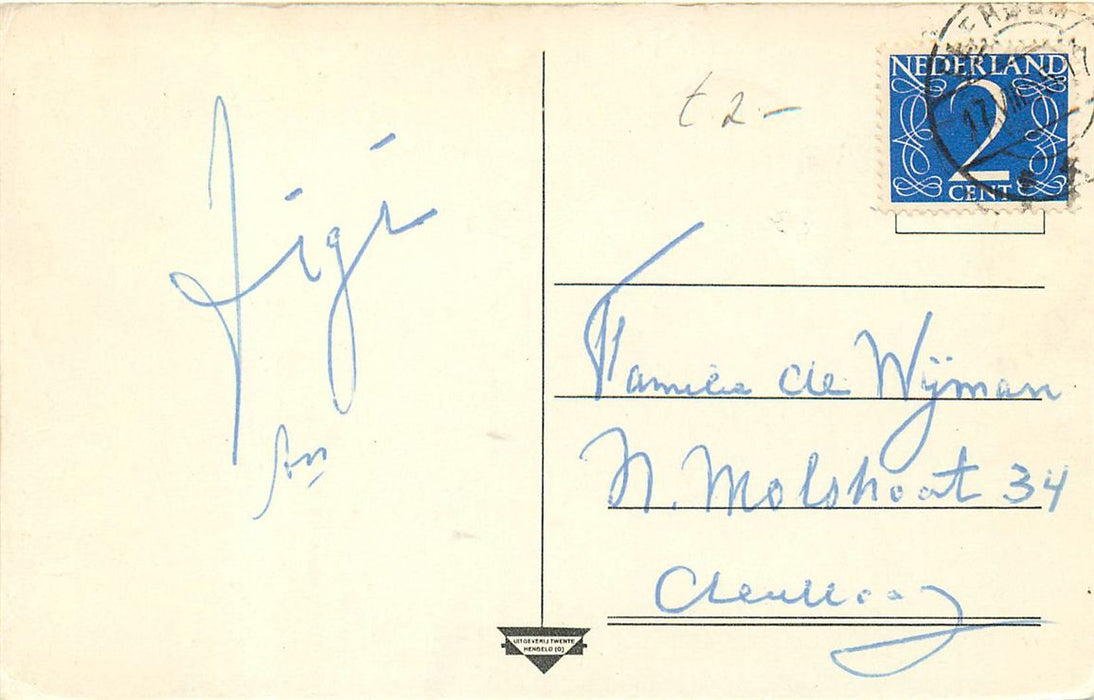 Jigi
An
t 2-
NEDERLAND
2
CENT
17 VIII
Familie de Wijman
N. Molstraat 34
den Haag
UITGEVERIJ TWENTE
HENGELO (O)